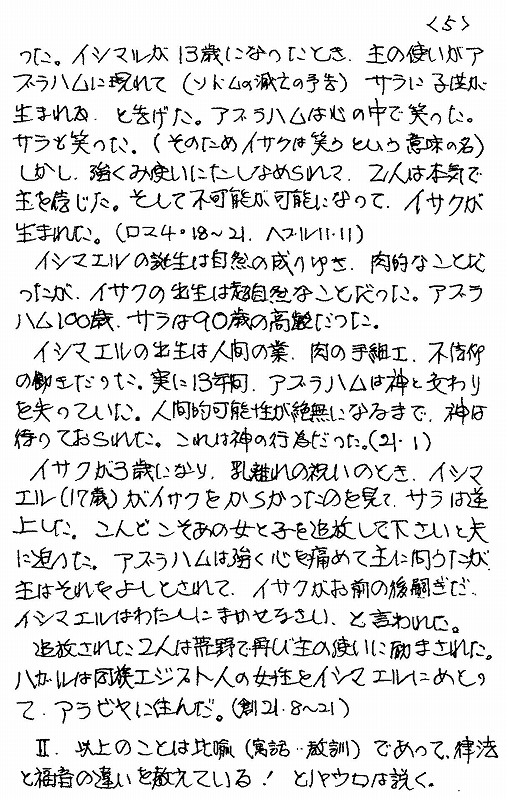 <5>
った。イシマルが13歳になったとき、主の使いがア
ブラハムに現れて（ソドムの滅亡の予告）サラに子供が
生まれる、と告げた。アブラハムは心の中で笑った。
サラも笑った。（そのためイサクは笑うという意味の名）
しかし、強くみ使いにたしなめられて、2人は本気で
主を信じた。そして不可能が可能になって、イサクが
生まれた。（ロマ4・18〜21、ヘブル11・11）
イシマエルの誕生は自然の成りゆき、肉的なことだ
ったが、イサクの出生は超自然なことだった。アブラ
ハム100歳、サラは90歳の高齢だった。
イシマエルの出生は人間の業、肉の手細工、不信仰
の働きだった。実に13年間、アブラハムは神と交わり
を失っていた。人間的可能性が絶無になるまで、神は
待っておられた。これは神の行為だった。（21・1）
イサクが3歳になり、乳離れの祝いのとき、イシマ
エル（17歳）がイサクをからかったのを見て、サラは逆
上した。こんどこそあの女と子を追放して下さいと夫
に迫った。アブラハムは強く心を痛めて主に問うたが、
主はそれをよしとされて、イサクがお前の後嗣ぎだ、
イシマエルはわたしにまかせなさい、と言われた。
追放された2人は荒野で再び主の使いに励まされた。
ハガルは同族エジプト人の女性をイシマエルにめとっ
て、アラビヤに住んだ。（創21・8〜21）
Ⅱ. 以上のことは比喩（寓話・教訓）であって、律法
と福音の違いを教えている！とパウロは説く。